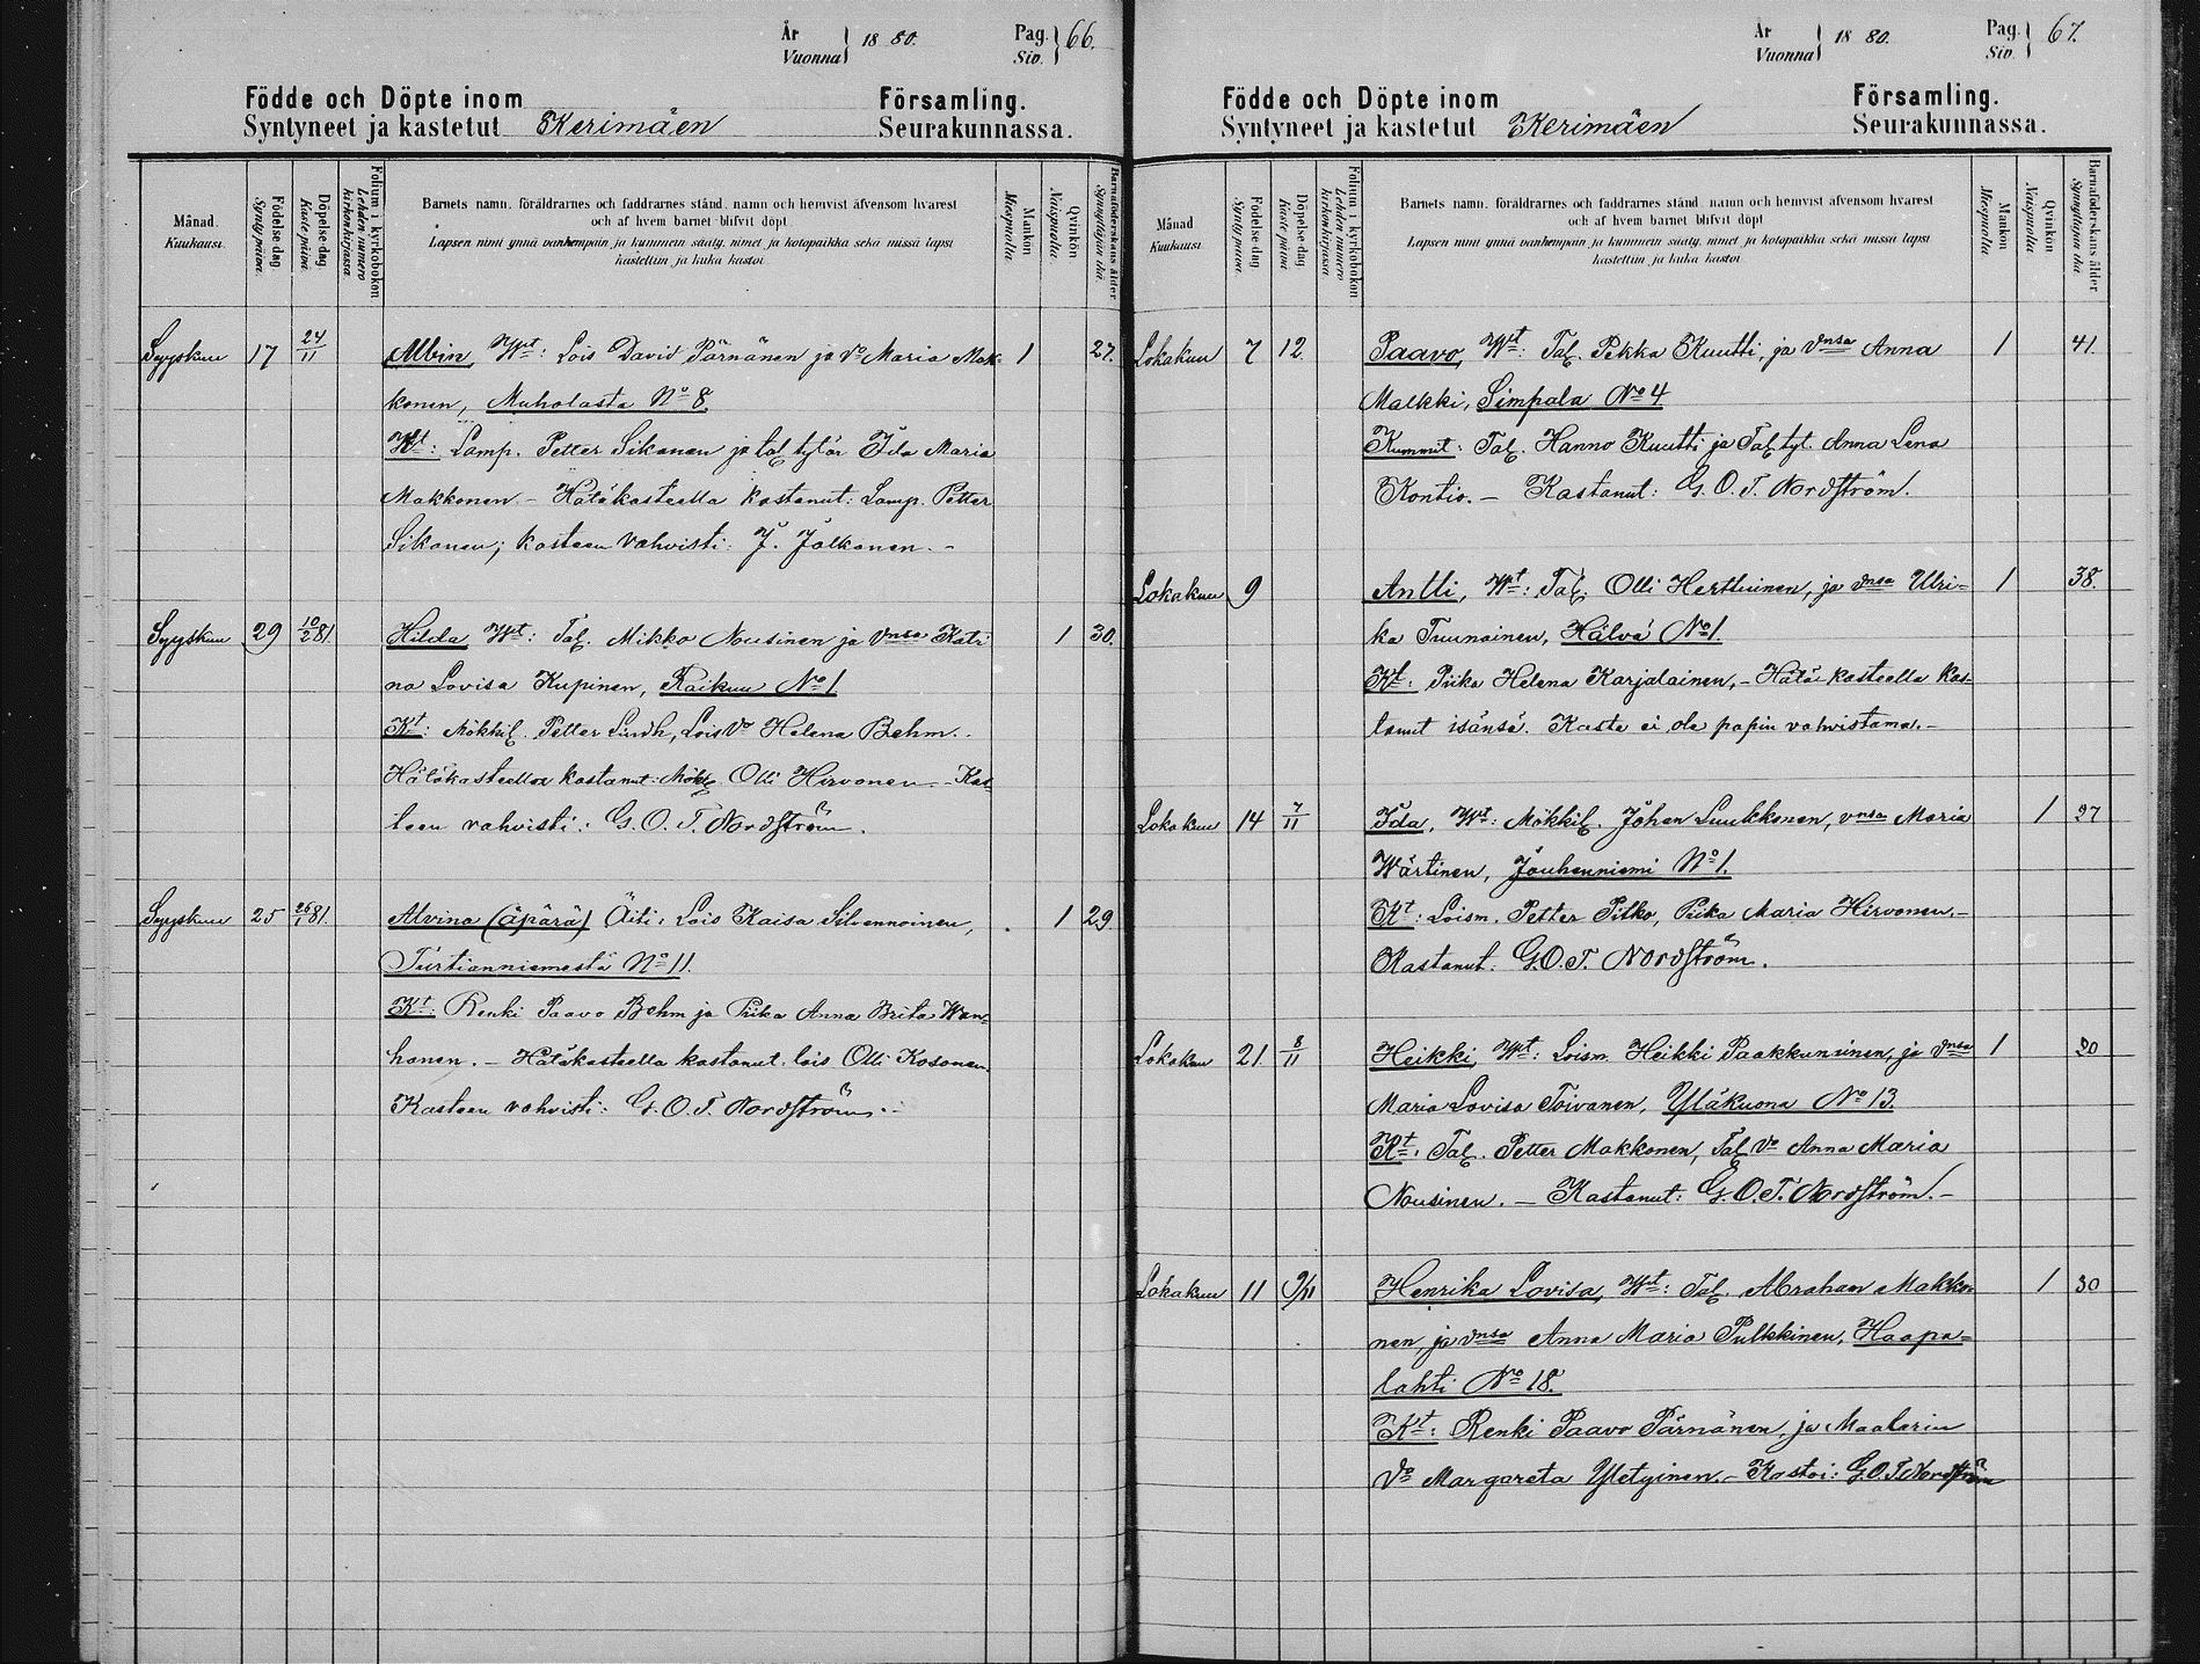 År
Vuonna } 18 80.
Pag.
Siv. } 66.
Födde och Döpte inom
Syntyneet ja kastetut Kerimäen
Församling.
Seurakunnassa.
Månad.
Kuukausi.
Födelse dag
Synty päivä.
Döpelse dag
Kaste päivä
Folium i kyrkoboken
Lehden numero kirkonkirjassa
Barnets namn, föräldrarnes och faddrarnes stånd, namn och hemvist äfvensom hvarest
och af hvem barnet blifvit döpt
Lapsen nimi ynnä vanhempain ja kummein sääty, nimet ja kotopaikka sekä missä lapsi
kastettiin ja kuka kastoi
Mankön
Miespuolia
Qvinkön
Naispuolia
Barnaföderskans ålder
Synnyttäjän ikä
Syyskuu 17 24/11 Albin, Wt: Lois David Pärnänen ja Vo Maria Mak- 1 27.
konen, Muholasta No 8.
Kt: Lamp. Petter Sikanen ja tal tytär Ida Maria
Makkonen – Hätäkasteella kastanut: Lamp. Petter
Sikanen; kasteen vahvisti: J. Jalkanen. –
Syyskuu 29 10/2 81. Hilda Wt: Tal. Mikko Nousinen ja Vnsa Katri 1 30.
na Lovisa Kupinen, Raikuu No 1
Kt: Mökkil. Petter Lindh, Lois Vo Helena Behm.
Hätäkasteella kastanut: Mökl. Olli Hirvonen – Kas-
teen vahvisti: G. O. T. Nordström.
Syyskuu 25 26/1 81. Alvina (äpärä) Äiti: Lois Kaisa Silvennoinen, 1 29.
Turtianniemestä No 11.
Kt: Renki Paavo Behm ja Piika Anna Brita Wan-
hanen. – Hätäkasteella kastanut: lois Olli Kosonen.
Kasteen vahvisti: G. O. T. Nordström.
År
Vuonna } 18 80.
Pag.
Siv. } 67.
Födde och Döpte inom
Syntyneet ja kastetut Kerimäen
Församling.
Seurakunnassa.
Månad
Kuukausi
Födelse dag
Synty päivä.
Döpelse dag
Kaste päivä
Folium i kyrkoboken
Lehden numero kirkonkirjassa
Barnets namn, föräldrarnes och faddrarnes stånd namn och hemvist äfvensom hvarest
och af hvem barnet blifvit döpt
Lapsen nimi ynnä vanhempain ja kummein sääty, nimet ja kotopaikka sekä missä lapsi
kastettiin ja kuka kastoi
Mankön
Miespuolia
Qvinkön
Naispuolia
Barnaföderskans ålder
Synnyttäjän ikä
Lokakuu 7 12. Paavo, Wt: Tal. Pekka Kuutti, ja Vnsa Anna 1 41.
Malkki, Simpala No 4
Kummit: Tal. Hanno Kuutti ja Tal. tyt. Anna Lena
Kontio. – Kastanut: G. O. T. Nordström.
Lokakuu 9 Antti, Wt: Tal. Olli Herttuinen, ja Vnsa Ulri- 1 38.
ka Tuunainen, Hälvä No 1.
Kt: Piika Helena Karjalainen, – Hätä-kasteella kas-
tanut isänsä. Kaste ei ole papin vahvistama. –
Lokakuu 14 7/11 Ida, Wt: Mökkil. Johan Luukkonen, vnsa Maria 1 27
Wärtinen, Jouhenniemi No 1.
Kt: Loism. Petter Pitko, Piika Maria Hirvonen. –
Kastanut: G. O. T. Nordström.
Lokakuu 21. 8/11 Heikki, Wt: Loism. Heikki Paakkunainen, ja Vnsa 1 20
Maria Lovisa Toivanen, Yläkuona No 13.
Kt: Tal. Petter Makkonen, Tal. Vo Anna Maria
Nousinen. – Kastanut: G. O. T. Nordström. –
Lokakuu 11 9/11 Henrika Lovisa, Wt: Tal. Abraham Makko- 1 30
nen, ja vnsa Anna Maria Pulkkinen, Haapa-
lahti No 18.
Kt: Renki Paavo Pärnänen, ja Maalarin
Vo Margareta Yletyinen. – Kastoi: G. O. T. Nordström